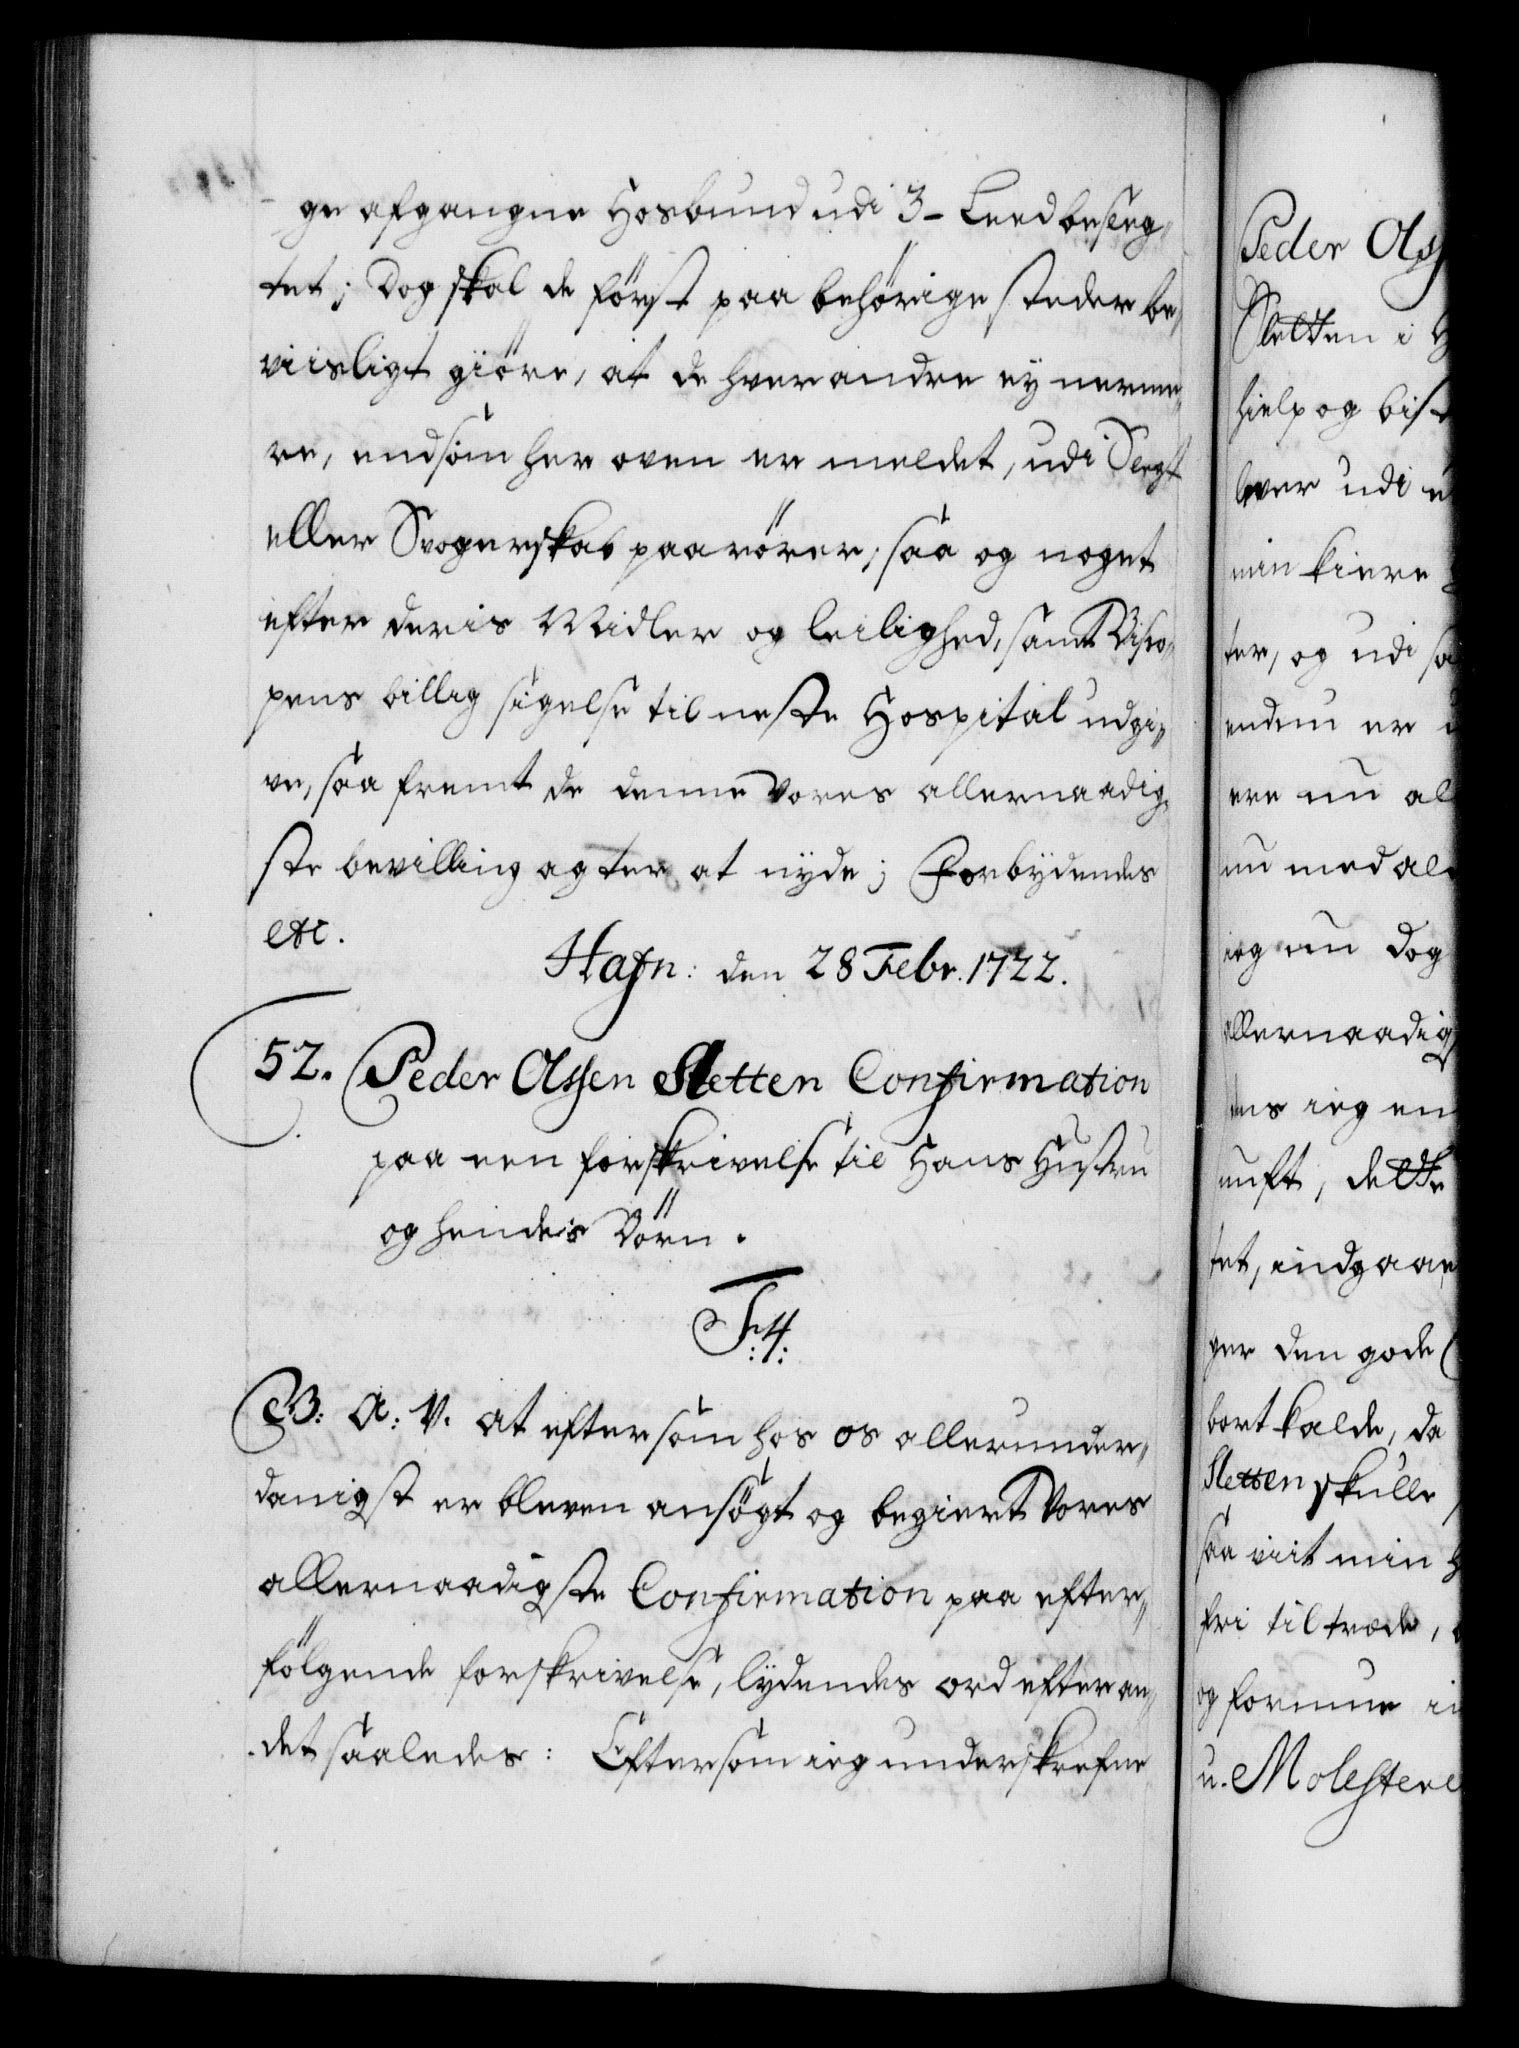 ge afgangne Hosbund udi 3- Leed besleg,,
tet; Dog skal de först paa behörige steder be,,
viisligt giöre, at de hver andre ey nerme,,
re, end som her oven er meldet, udi Slegt
eller Svogerskab paarörer; saa og noget
efter deris Midler og leilighed, samt Bisco,,
pens billig sigelse til neste Hospital udgi,,
ve, saa fremt de denne Vores allernaadig,,
ste bevilling agter at nyde; Forbydendes
etc.
Hafn: den 28 Febr. 1722.
52. Peder Olssen Sletten Confirmation
paa een forskrivelse til Hans Hustru
og hendes Börn.
F:4:
G. B: A: V. at eftersom hos os allerunder,,
danigst er bleven ansögt og begiert Vores
allernaadigste Confirmation paa efter,,
fölgende forskrivelse, lydendes ord efter an,,
det saaledes: Eftersom ieg underskrefne
Peder Olss
Sletten i H
hielp og bist
lever udi
min kiere
ter, og udi sa
endnu er
ere nu al
nu med al
ieg nu dog
allernaadig
ens ieg en
nuft, dette
tet, indgaae
ger den gode
bort kalde, da
Sletten skulle
saa viit min H
fri tiltræde,
og formue i
u. Molestere